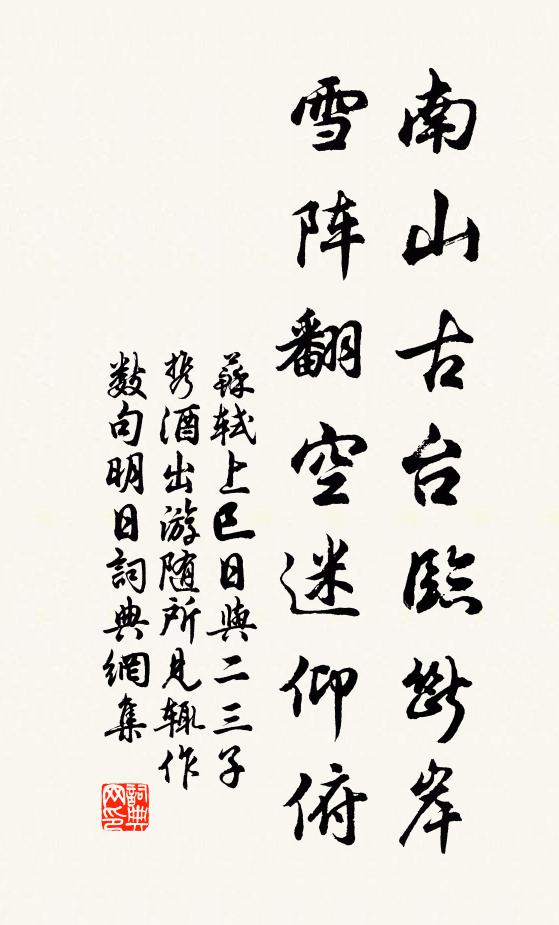 南山古台臨断岸
雪阵翻空迷仰俯
蘇轼上巳日與二三子
携酒出游随所見辄作
数句明日詞典網集
詞典
网印